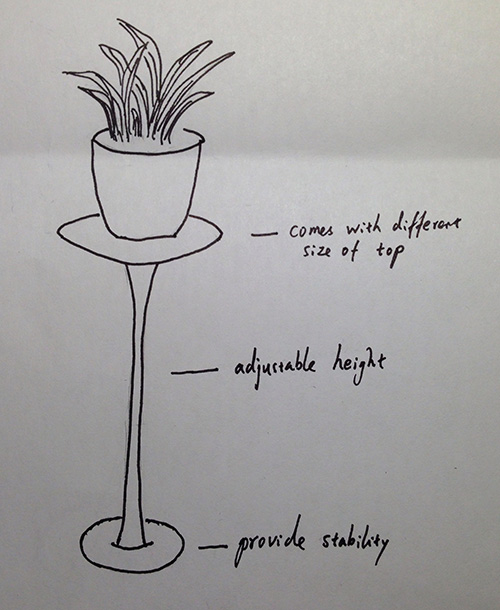 comes with different
size of top
adjustable height
provide stability